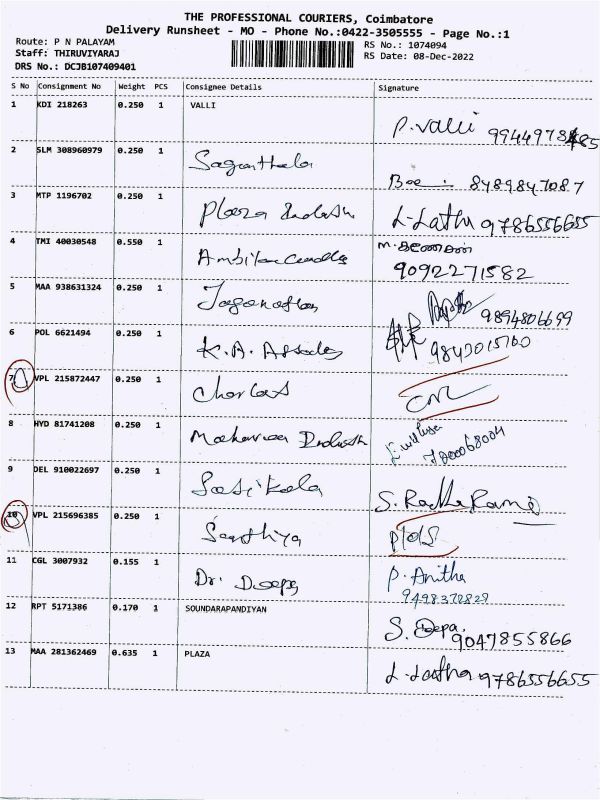 THE PROFESSIONAL COURIERS, Coimbatore
Delivery Runsheet - MO - Phone No.:0422-3505555 - Page No.:1
Route: P N PALAYAM RS No.: 1074094
Staff: THIRUVIYARAJ RS Date: 08-Dec-2022
DRS No.: DCJB107409401
S No Consignment No Weight PCS Consignee Details Signature
1 KDI 218263 0.250 1 VALLI
P. Valli
2 SLM 308960979 0.250 1
8489847087
3 MTP 1196702 0.250 1 Plaza
L. Latha 9786556655
4 TMI 40030548 0.550 1
9092271582
5 MAA 938631324 0.250 1 Jaganathan
9894806699
6 POL 6621494 0.250 1 K.A.
9843015760
7 VPL 215872447 0.250 1 Charlas
8 HYD 81741208 0.250 1
9 DEL 910022697 0.250 1 Sasikala
S. Radha Ramo
10 VPL 215696385 0.250 1 Santhiya
11 CGL 3007932 0.155 1 Dr. Deepa
P. Anitha
9498372829
12 RPT 5171386 0.170 1 SOUNDARAPANDIYAN
S. Deepa. 9047855866
13 MAA 281362469 0.635 1 PLAZA
L. Latha 9786556655